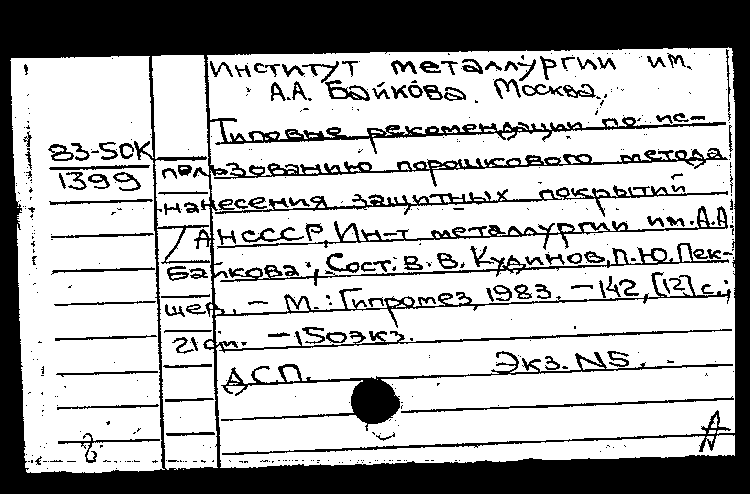 Институт металлургии им.
А.А. Байкова. Москва.
Типовые рекомендации по ис-
83-50К
1399
пользованию порошкового метода
нанесения защитных покрытий
/АНСССР, Ин-т металлургии им. А.А
Байкова; Сост: В.В. Кудинов, П.Ю. Пек-
шев. – М.: Гипромез, 1983. – 142, [12] с.;
21 см. – 150 экз.
ДСП. Экз. N5.